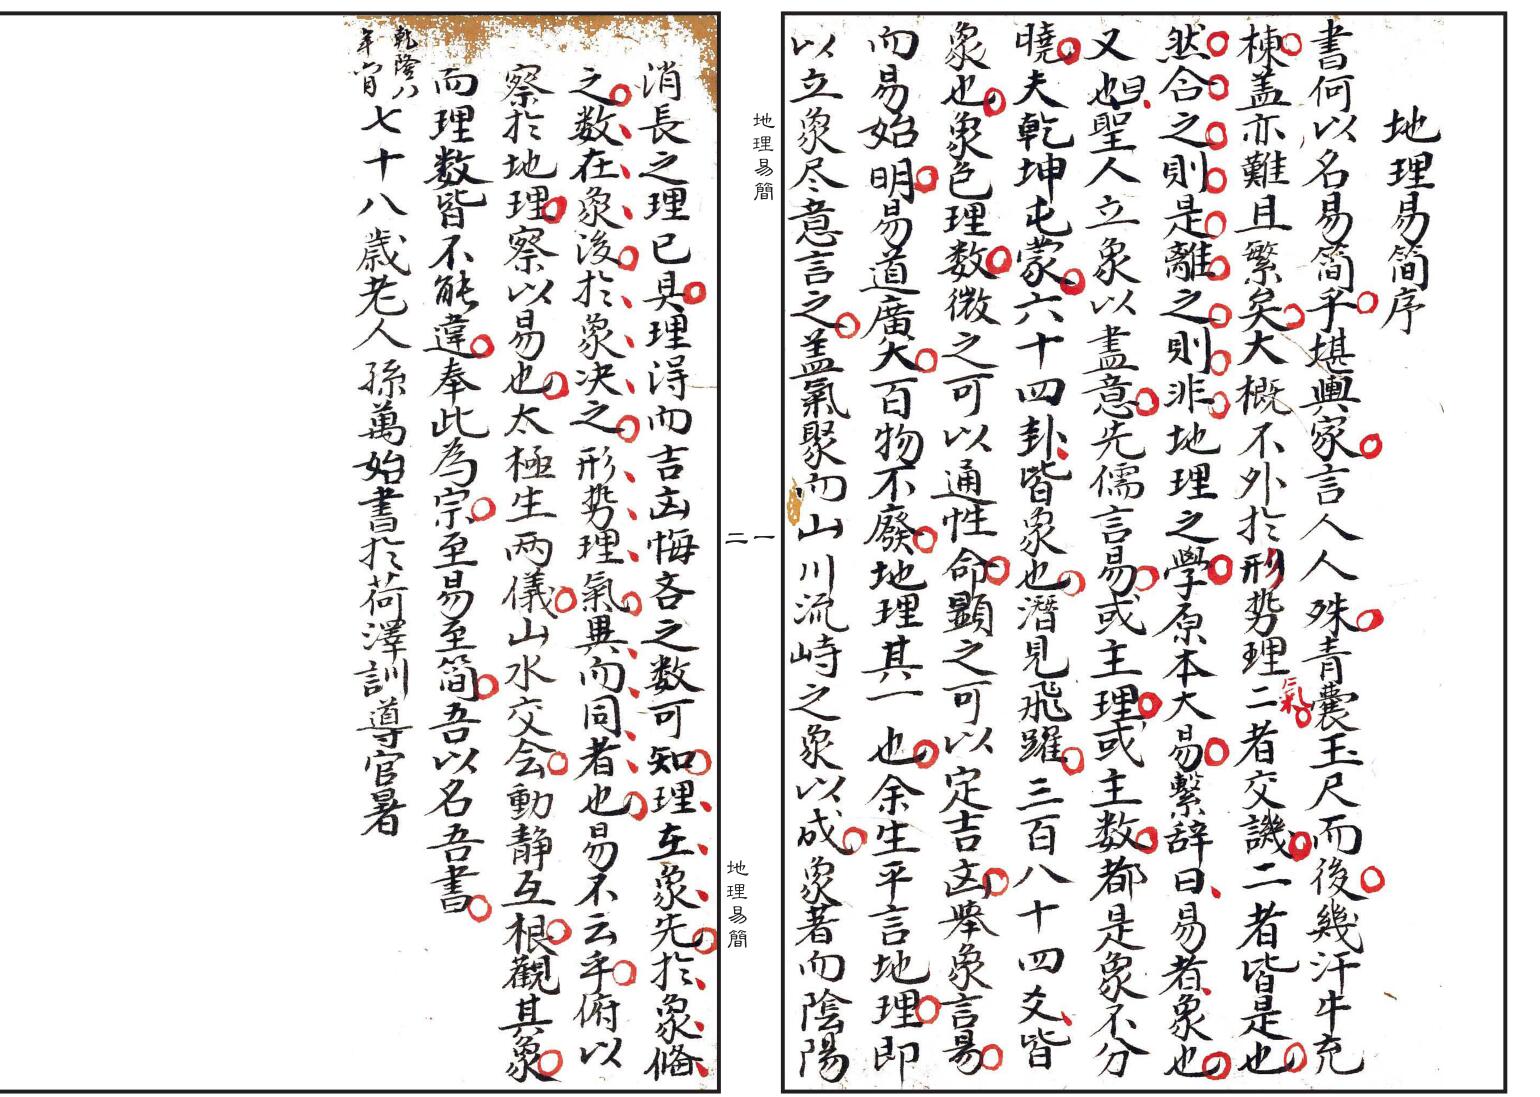 地理易简序
書何以名易简乎堪輿家言人人殊青囊玉尺而後幾汗牛充
棟盖亦難且繁矣大概不外於形势理氣二者交譏二者皆是也
然合之則是離之則非地理之學原本大易繫辞曰易者象也
又曰聖人立象以盡意先儒言易或主理或主数都是象不分
曉夫乾坤屯蒙六十四卦皆象也潛見飛躍三百八十四爻皆
象也象色理数微之可以通性命顯之可以定吉凶舉象言易
而易始明易道廣大百物不廢地理其一也余生平言地理即
以立象尽意言之盖氣聚而山川流峙之象以成象著而陰陽
消長之理已具理淂而吉凶悔吝之数可知理在象先於象俻
之数在象後於象决之形势理氣異而同者也易不云乎俯以
察於地理察以易也太極生两儀山水交会動静互根觀其象
而理数皆不能違奉此為宗至易至简吾以名吾書
乾隆八年六月七十八歲老人孫萬始書於荷澤訓導官署
地理易簡
一
二
地理易簡